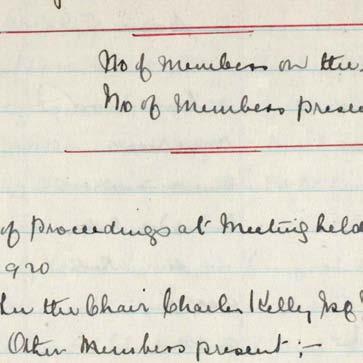 No of Members on the
No of Members prese
of Proceedings at Meeting held
920
In the Chair Charles Kelly Esq
Other Members present :-